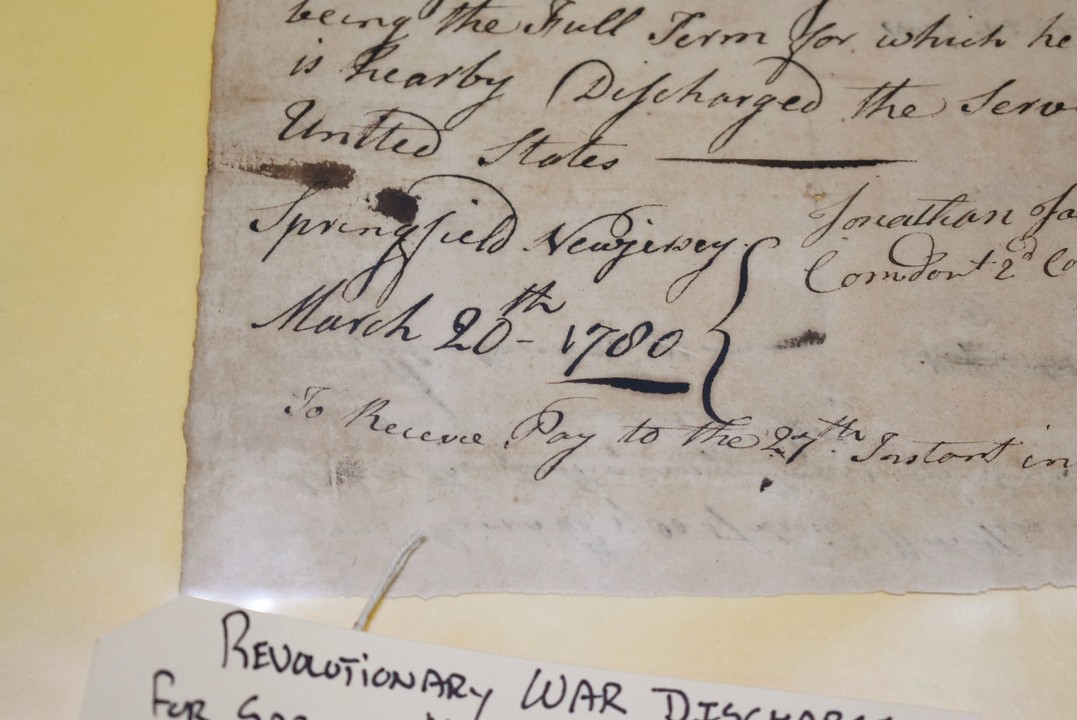 being the Full Term for which he
is hearby Discharged the Serv
United States
Springfield Newjersey
Jonathan
Comdont 2d Co
March 20th - 1780
To Receve Pay to the 27th Instant in
REVOLUTIONARY WAR DISCHAR
FOR